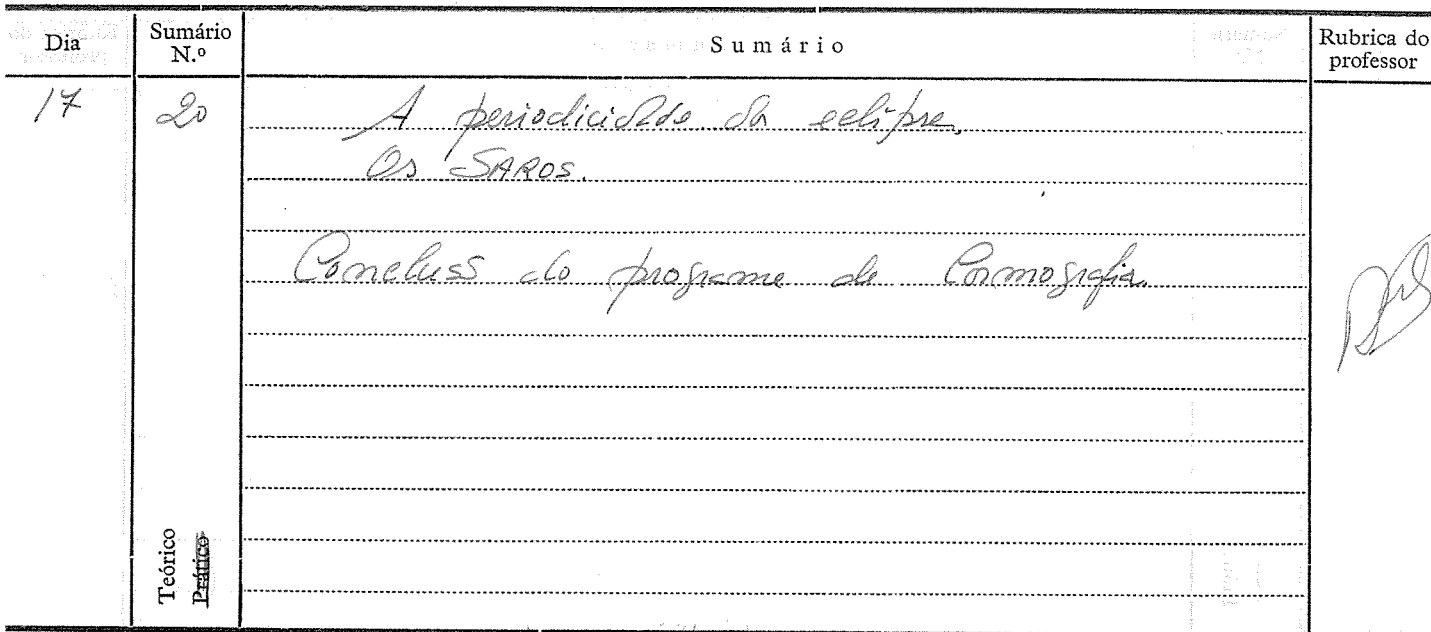 Dia Sumário N.º Sumário Rubrica do professor
17 20 A periodicidade da eclipse.
Os SAROS.
Conclusã do programa de Cosmografia.
Teórico
Prático